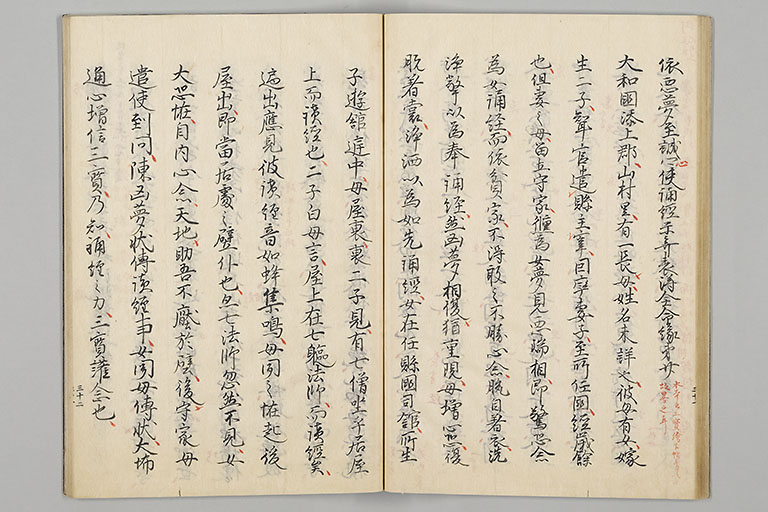 依惡夢至誠心使誦經示奇表得全命緣第廿
大和國添上郡山村里有一長母姓名未詳也彼母有女嫁
生二子聟官遣縣主宰因率妻子至所任國經歲餘
也但妻之母留土守家儵為女夢見惡瑞相即驚恐念
為女誦經而依貧家不得敢之不勝心念脫自著衣洗
淨擎以為奉誦經然凶夢相復猶重現母增心恐復
脫著裳淨洒以為如先誦經女在任縣國司館所生
子遊館庭中母屋裏裏二子見有七僧坐乎居屋
上而讀經也二子白母言屋上在七軀法師而讀經矣
遄出應見彼讀經音如蜂集鳴母聞之恠起後
屋出即當居處之壁仆也亦七法師忽然不見女
大恐恠自內心念天地助吾不厭於壁後守家母
遣使到問陳凶夢狀傳讀經事女聞母傳狀大怖
通心增信三寶乃知誦經之力三寶護念也
三十二